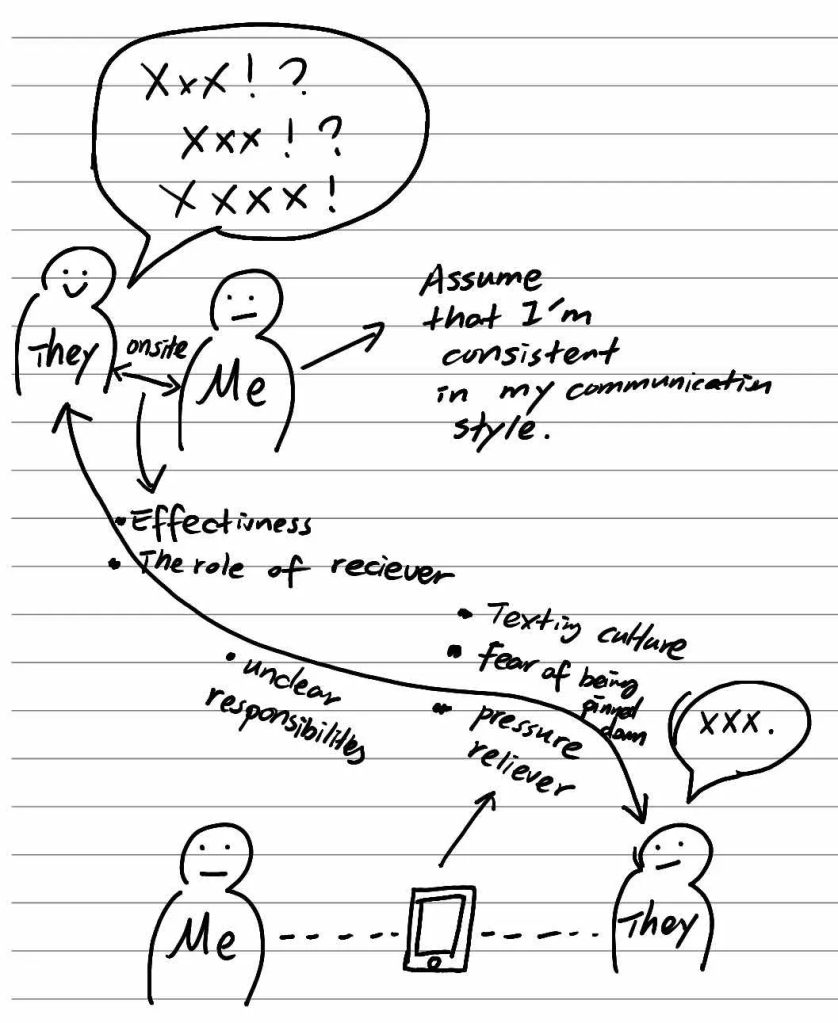 XxX!?
xxx!?
XXXX!
They
onsite
Me
Assume
that I'm
consistent
in my communication
style.
• Effectivness
• The role of reciever
• Texting culture
• Fear of being
pinned
down
• unclear
responsibilities
• pressure
reliever
xxx.
Me
They